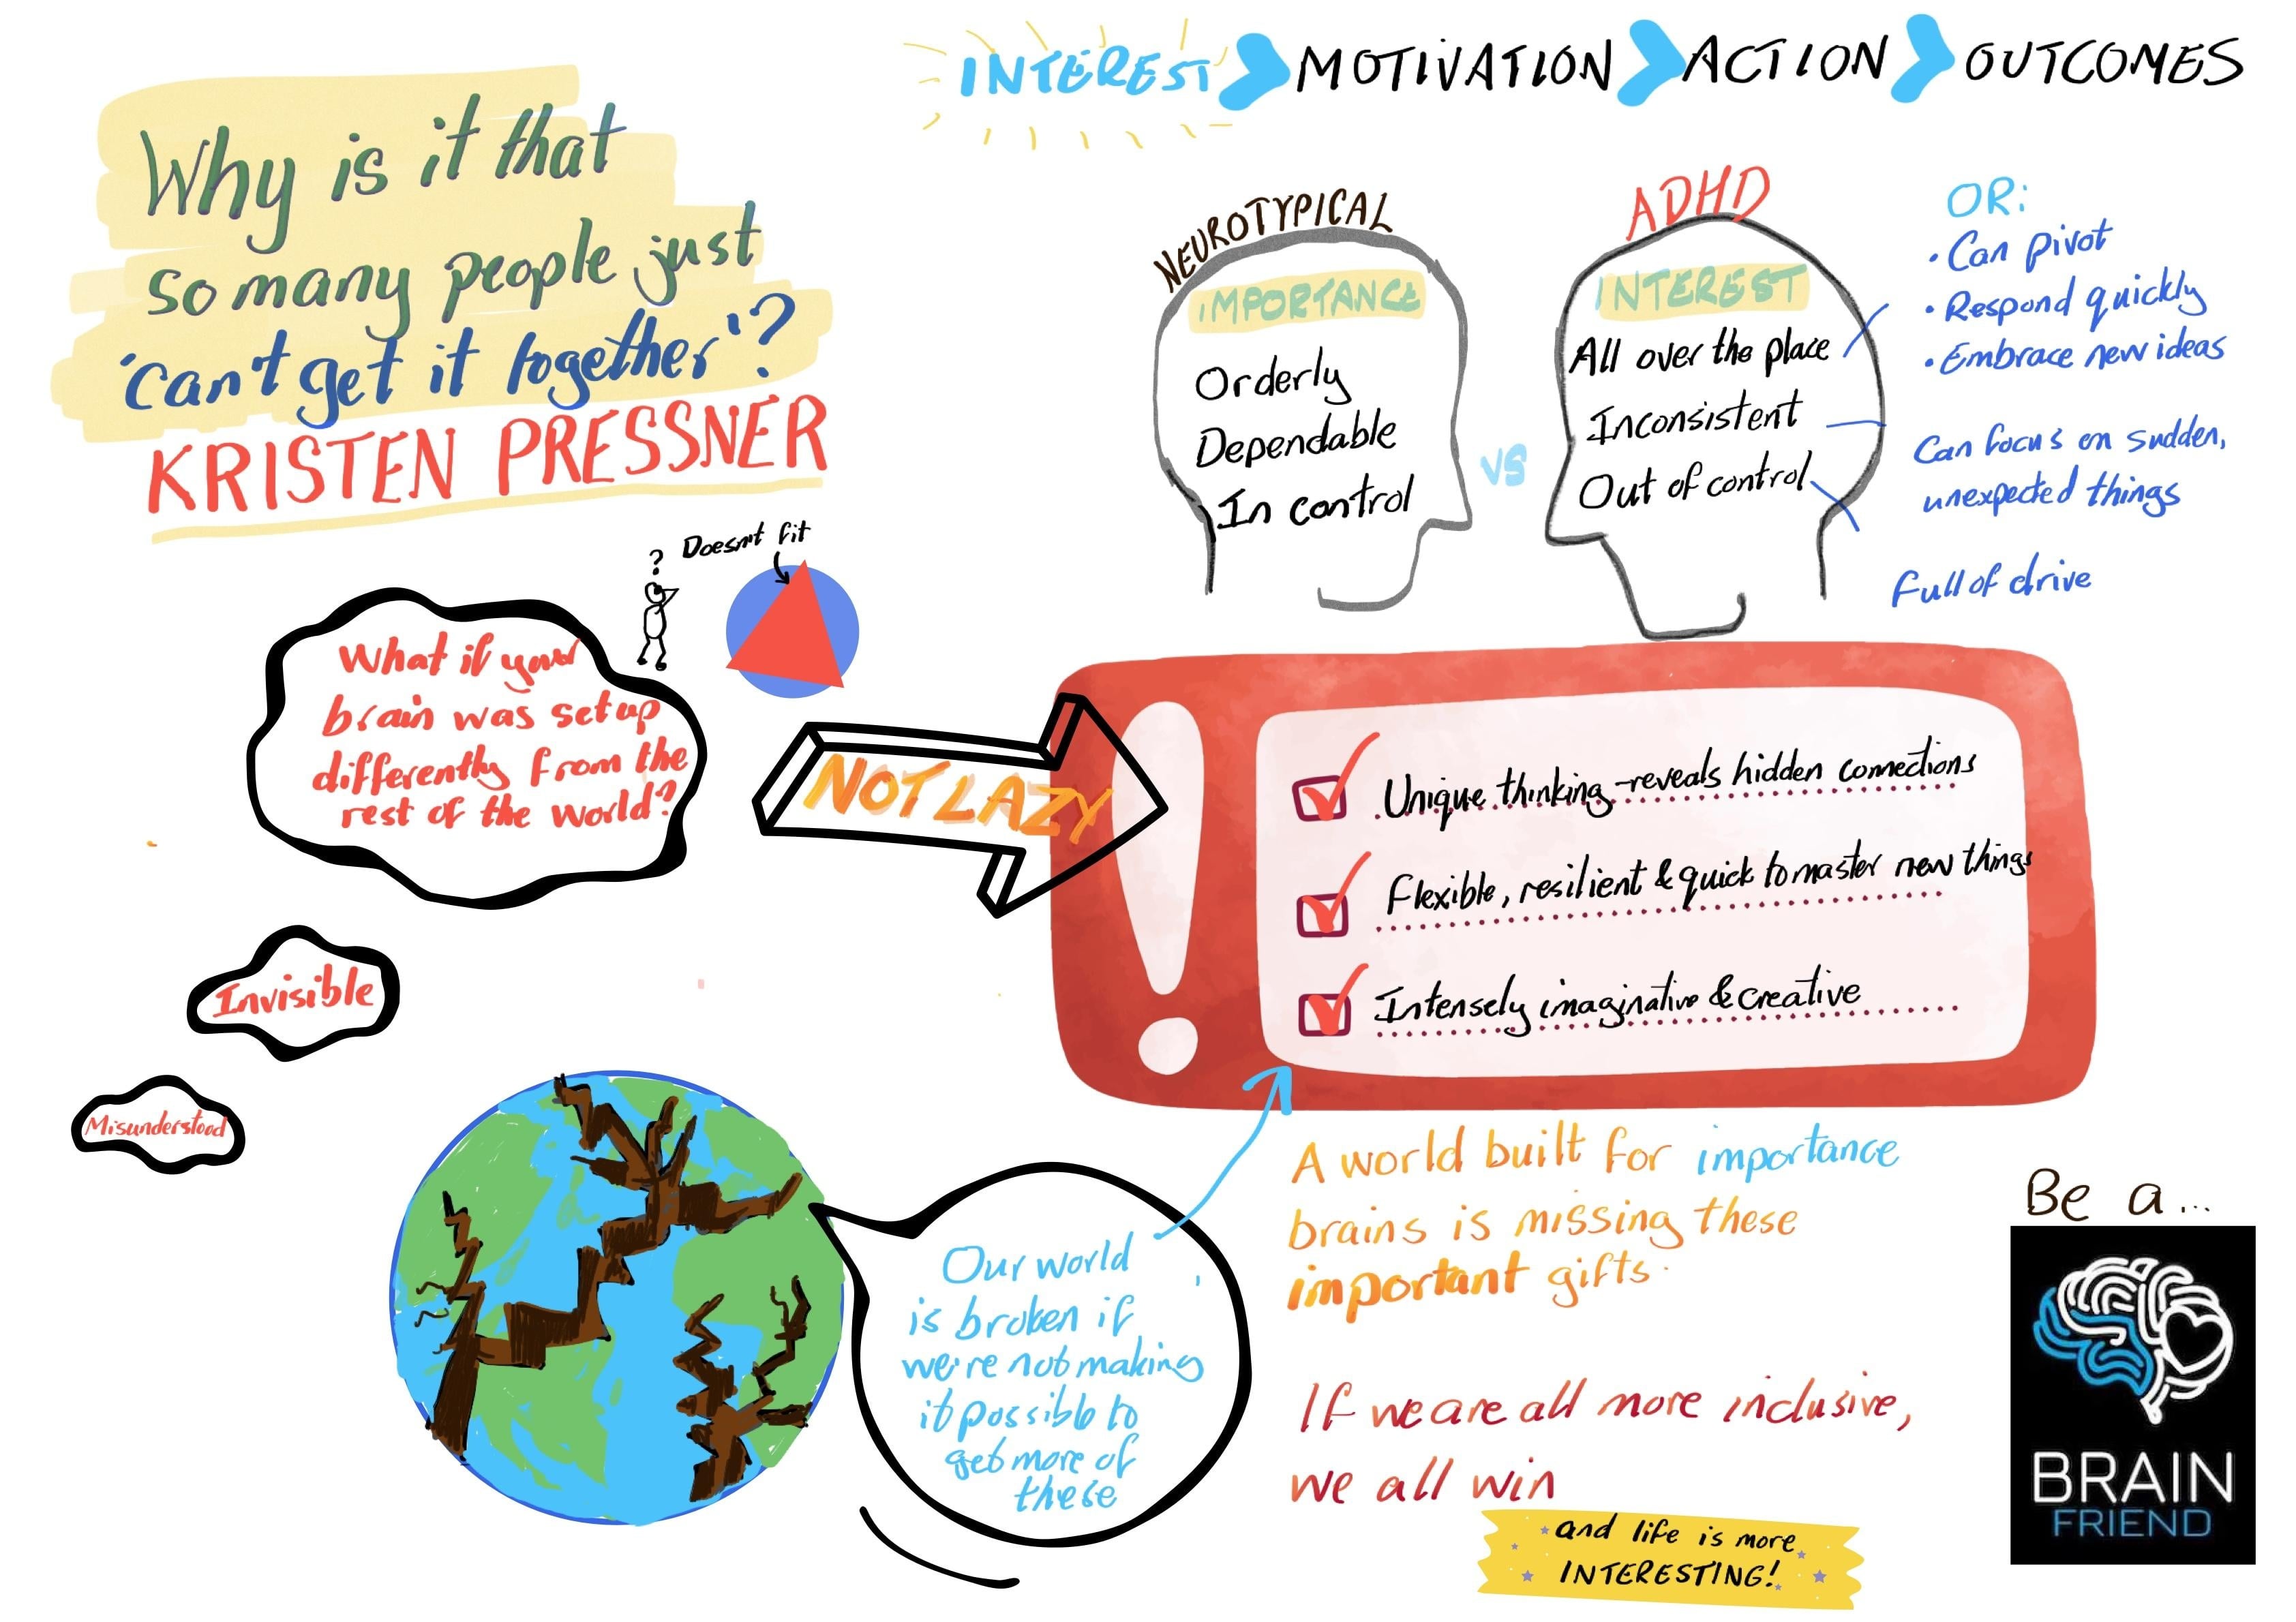 Why is it that
so many people just
'can't get it together'?
KRISTEN PRESSNER
INTEREST > MOTIVATION > ACTION > OUTCOMES
NEUROTYPICAL
IMPORTANCE
Orderly
Dependable
In control
VS
ADHD
INTEREST
All over the place
Inconsistent
Out of control
OR:
• Can pivot
• Respond quickly
• Embrace new ideas
Can focus on sudden,
unexpected things
Full of drive
?
Doesn't fit
What if your
brain was set up
differently from the
rest of the world?
Invisible
Misunderstood
NOT LAZY
!
Unique thinking - reveals hidden connections
Flexible, resilient & quick to master new things
Intensely imaginative & creative
Our world
is broken if
we're not making
it possible to
get more of
these
A world built for importance
brains is missing these
important gifts.
If we are all more inclusive,
we all win
and life is more
INTERESTING!
Be a...
BRAIN
FRIEND